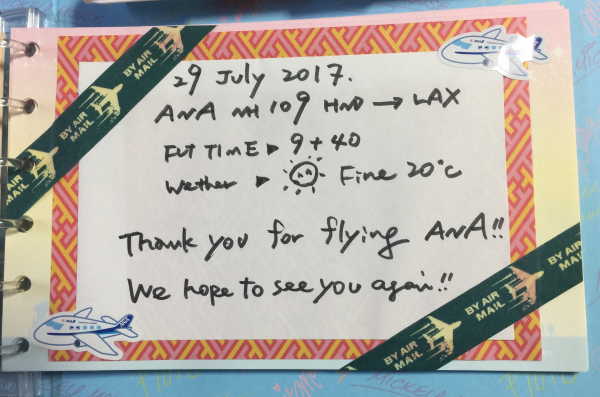 29 July 2017.
ANA NH 109 HND → LAX
FLT TIME ▶ 9+40
Wether ▶ Fine 20°C
Thank you for flying ANA!!
We hope to see you again!!
BY AIR MAIL
BY AIR MAIL
BY AIR MAIL
BY AIR MAIL
BY AIR MAIL
BY AIR